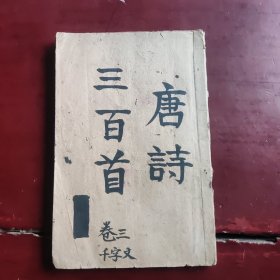 唐詩
三百首
卷三
千字文